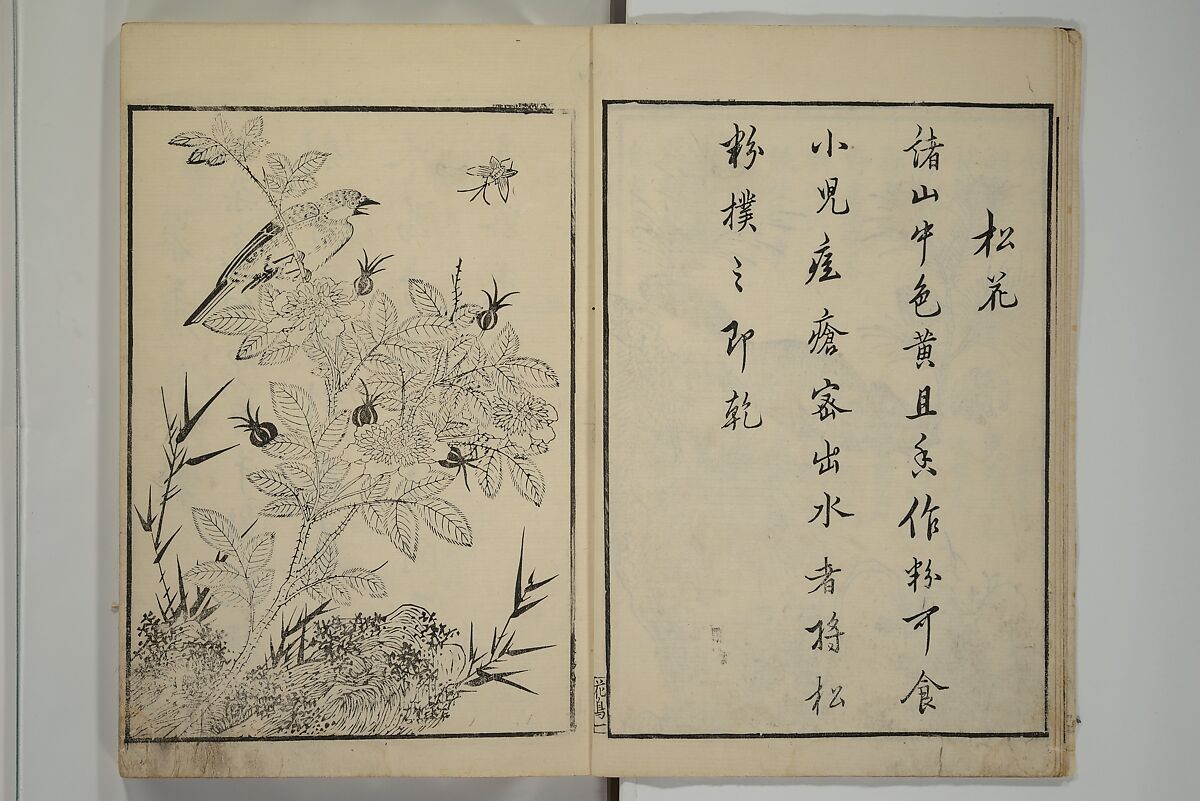 松花
諸山中色黄且香作粉可食
小児痘瘡密出水者将松
粉撲〻即乾
花鳥一